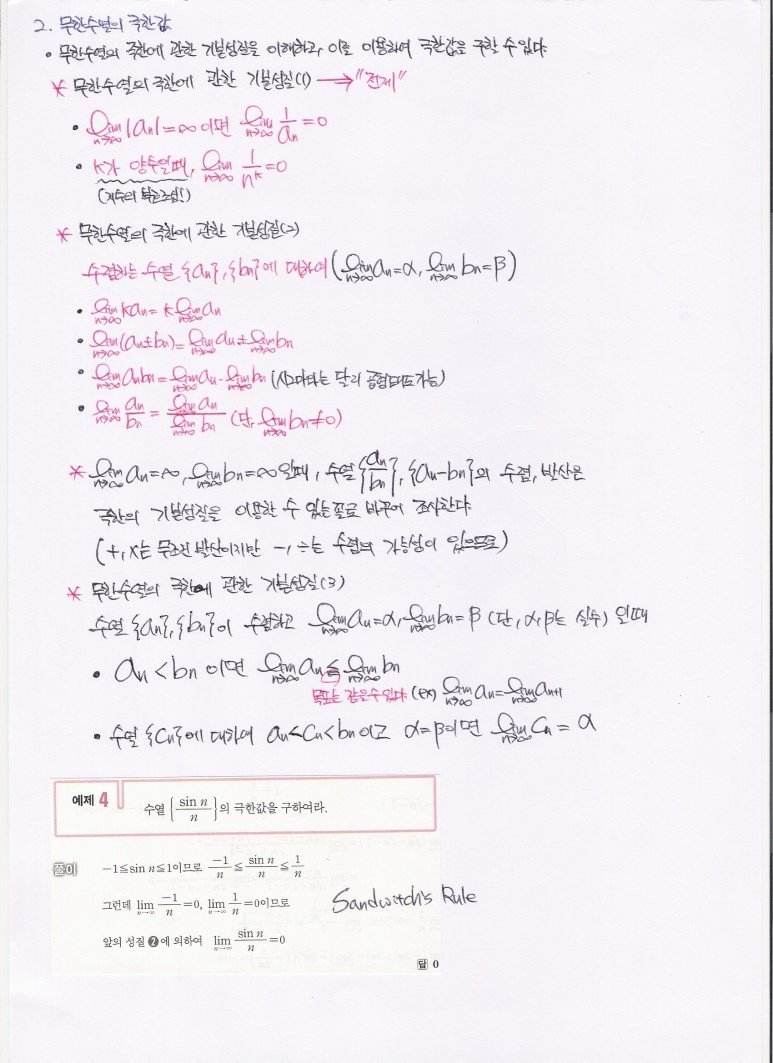 2. 무한수열의 극한값
• 무한수열의 극한에 관한 기본성질을 이해하고, 이를 이용하여 극한값을 구할 수 있다.
* 무한수열의 극한에 관한 기본성질(1) → "전제"
• lim n→∞ |an| = ∞ 이면 lim n→∞ 1/an = 0
• k가 양수일때, lim n→∞ 1/n^k = 0
* 무한수열의 극한에 관한 기본성질(2)
수렴하는 수열 {an}, {bn}에 대하여 (lim n→∞ an = α, lim n→∞ bn = β)
• lim n→∞ kan = k lim n→∞ an
• lim n→∞ (an ± bn) = lim n→∞ an ± lim n→∞ bn
• lim n→∞ anbn = lim n→∞ an · lim n→∞ bn (시그마와는 달리 곱셈 가능)
• lim n→∞ an/bn = lim n→∞ an / lim n→∞ bn (단, lim n→∞ bn ≠ 0)
* lim n→∞ an = ∞, lim n→∞ bn = ∞ 일때, 수열 {an/bn}, {an - bn}의 수렴, 발산은
극한의 기본성질을 이용할 수 있는 꼴로 바꾸어 조사한다.
(+, ×는 무조건 발산이지만 -, ÷는 수렴의 가능성이 있으므로)
* 무한수열의 극한에 관한 기본성질(3)
수열 {an}, {bn}이 수렴하고 lim n→∞ an = α, lim n→∞ bn = β (단, α, β는 실수) 일때
• an < bn 이면 lim n→∞ an ≤ lim n→∞ bn
목표는 같을 수 있다. (ex) lim n→∞ an = lim n→∞ an+1
• 수열 {cn}에 대하여 an < cn < bn 이고 α = β이면 lim n→∞ cn = α
예제 4 수열 {sin n/n}의 극한값을 구하여라.
풀이 -1≦sin n≦1이므로 -1/n ≦ sin n/n ≦ 1/n
그런데 lim n→∞ -1/n =0, lim n→∞ 1/n =0이므로
Sandwitch's Rule
앞의 성질 ❷에 의하여 lim n→∞ sin n/n =0
답 0